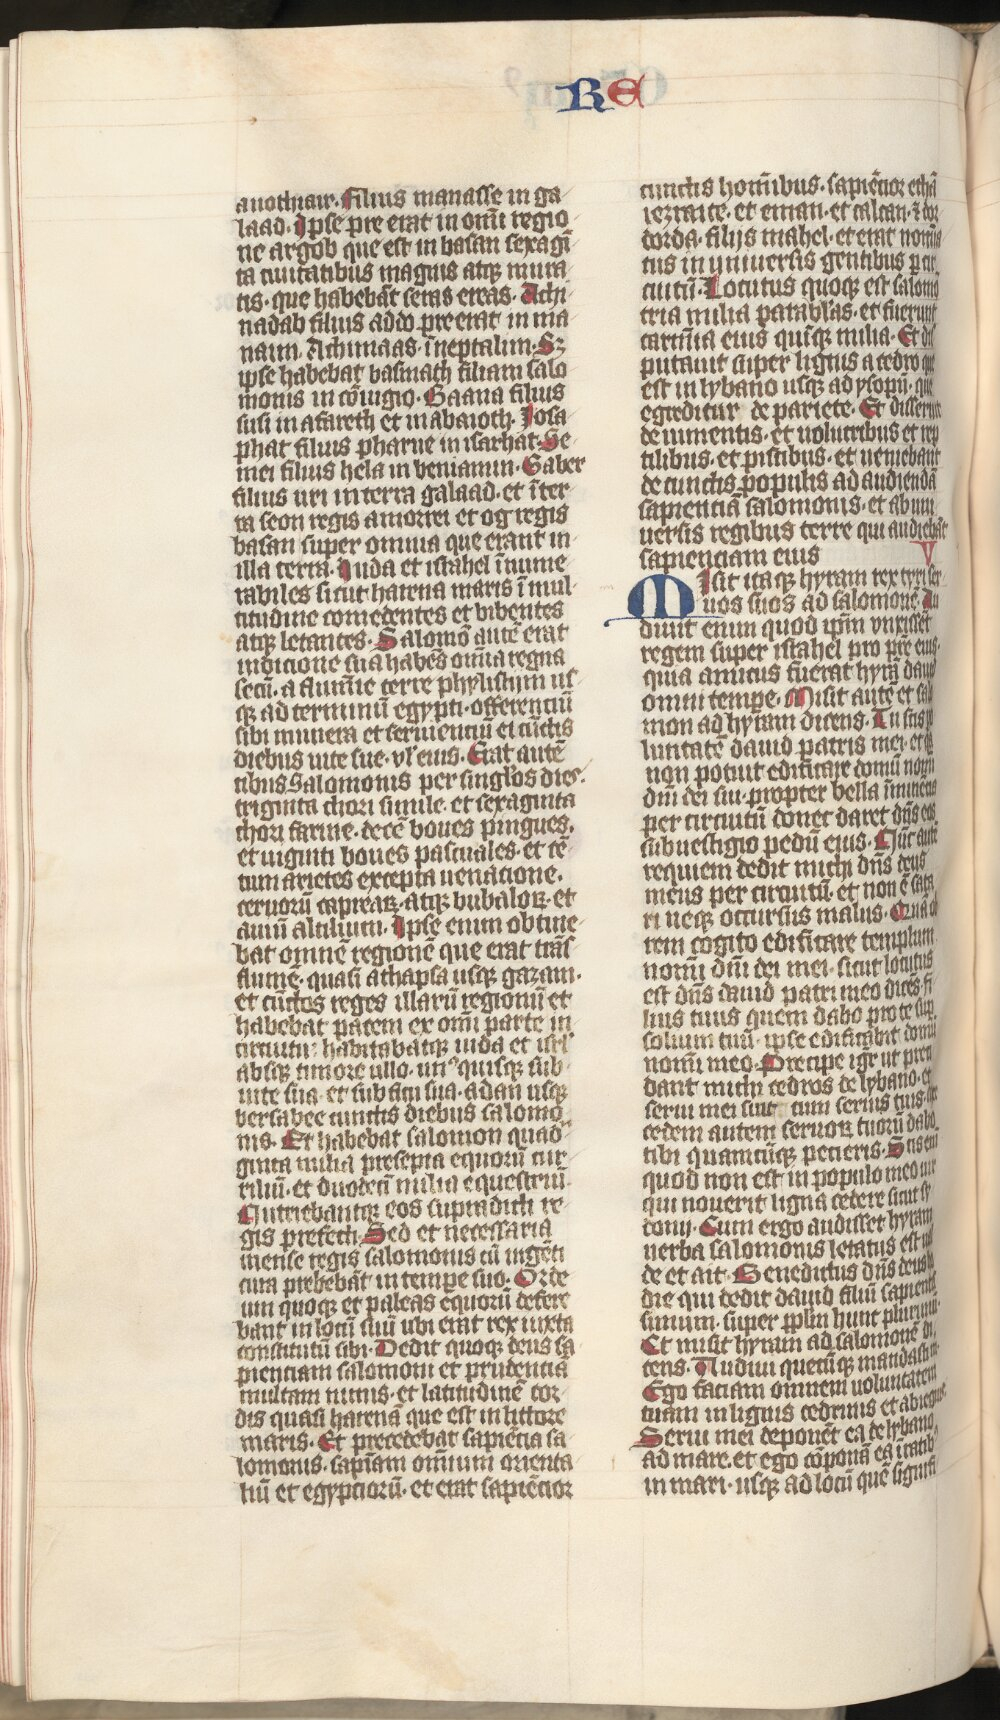 RE
auothiair. filius manasse in ga
laad. Ipse pre erat in om̄i regio
ne argob que est in basan sexagī
ta ciuitatibus magnis atqꝫ mura
tis. que habebāt seras ereas. Achi
nadab filius addo preerat in ma
naim. Achimaas. ī neptalim. Sꝫ
ipse habebat basmath filiam salo
monis in cōiugio. Baana filius
husi in asareth et in abaioth. Josa
phat filius pharue in isachat. Se
mei filius hela in beniamin. Gaber
filius uri in terra galaad. et ī ter
ra seon regis amorrei et og regis
basan super omnia que erant in
illa terra. Iuda et israhel īnume
rabiles sicut harena maris ī mul
titudine comedentes et bibentes
atqꝫ letantes. Salomō autē erat
indicione sua habēs om̄ia regna
secū. a flumīe terre phylistijm us
qꝫ ad terminū egypti. offerentiū
sibi munera et seruientiū ei cūctis
diebus uite sue. vl' eius. Erat autē
cibus Salomonis per singl'os dies.
triginta chori simile. et sexaginta
chori farine. decē boues pingues.
et uiginti boues pascuales. et cē
tum arietes excepta uenacione.
ceruorū capreaꝝ. atqꝫ bubaloꝝ. et
auiū altilium. Ipse enim obtine
bat omnē regionē que erat trās
flumē. quasi athapsa usqꝫ gazam.
et cūctos reges illarū regionū et
habebat pacem ex om̄i parte in
circuitu. habitabatqꝫ iuda et isrl'
absqꝫ timore ullo. unꝰquisqꝫ sub
uite sua. et sub ficu sua. a dan usqꝫ
bersabee cunctis diebus salomo
nis. Et habebat salomon quad
ginta milia presepia equorū cur
riliū. et duodecī milia equestriū
Nutriebantqꝫ eos supradicti re
gis prefecti. Sed et necessaria
mense regis salomonis cū ingēti
cura prebebāt in tempe suo. Orde
um quoqꝫ et paleas equorū defere
bant in locū suū ubi erat rex iuxta
constitutū sibi. Dedit quoqꝫ deus sa
pienciam salomoni et prudentiā
multam nimis. et latitudinē cor
dis quasi harenā que est in littore
maris. Et precedebat sapiētia sa
lomonis. sapīam omnium orienta
liū et egyptiorū. et erat sapiēcior
cunctis hom̄ibus. sapiēcior ethā
iezraite. et eman. et calcan. ⁊ dor
dorda. filijs mahel. et erat nomīa
tus in uniuersis gentibus p cir
cuitū. Locutus quoqꝫ est salomō
tria milia parabl'as. et fuerunt
carmīa eius quīqꝫ milia. Et dis
putauit super lignis a cedro que
est in lybano usqꝫ ad ysopū. que
egreditur de pariete. Et disseruit
de iumentis. et uolucribus et rep
tilibus. et piscibus. et ueniebant
de cunctis populis ad audiendā
sapienciā salomonis. et ab uni
uersis regibus terre qui audiebāt
sapienciam eius V
Misit itaqꝫ hyram rex tyri ser
uos suos ad salomonē. Au
diuit enim quod ip̄m unxisset
regem super israhel pro pr̄e eius.
quia amicus fuerat hyrā dauid
omni tempe. Misit autē et salo
mon ad hyram dicens. Tu scis uo
luntatē dauid patris mei. et qꝫ
non potuit edificare domū nom̄i
dn̄i dei sui. propter bella īminēcia
per circuitū donec daret dn̄s eos
sub uestigio pedū eius. Nūc autē
requiem dedit michi dn̄s deus
meus per circuitū. et non ē sata
n neqꝫ occursus malus. Quā ob
rem cogito edificare templum
nom̄i dn̄i dei mei. sicut locutus
est dn̄s dauid patri meo dicēs. fi
lius tuus quem dabo pro te sup
solium tuū. ipse edificabit domū
nom̄i meo. Precipe igr̄ ut preci
dant michi cedros de lybano. et
serui mei sint cum seruis tuis.
cedem autem seruoꝝ tuorū dabo
tibi quamcūqꝫ petieris. Scis enī
quod non est in populo meo uir
qui nouerit ligna cedere sicut sy
donij. Cum ergo audisset hyram
uerba salomonis letatus est ual
de et ait. Benedictus dn̄s deus ho
die qui dedit dauid filiū sapientis
simum. super pplm hunc plurimū.
Et misit hyram ad salomonē di
cens. Audiui quecūqꝫ mandasti m
Ego faciam omnem uoluntatem
tuam in lignis cedrinis et abiegnis.
Serui mei deponēt ea de lybano
ad mare. et ego cōponā ea ī ratib
in mari. usqꝫ ad locū quē signifi